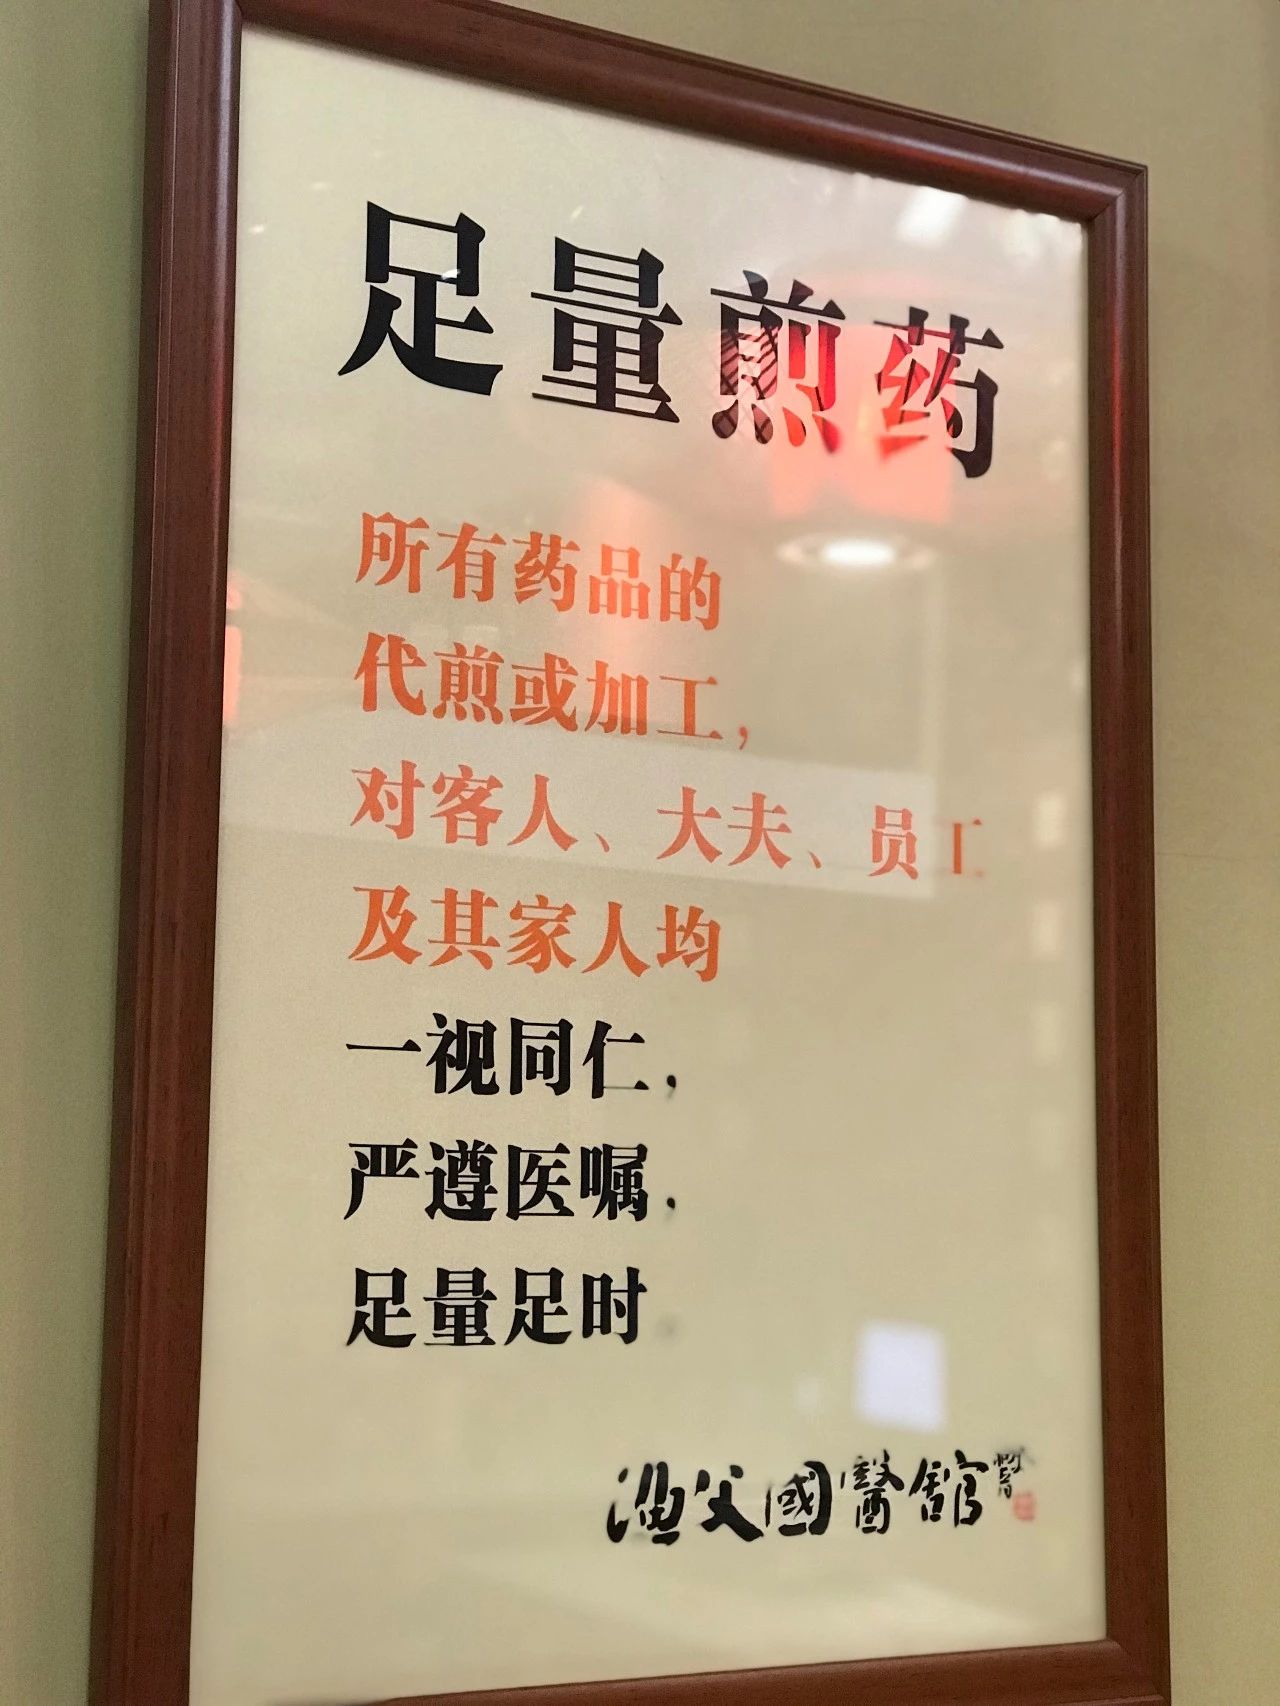 足量煎药
所有药品的
代煎或加工，
对客人、大夫、员工
及其家人均
一视同仁，
严遵医嘱，
足量足时
渔父國醫館